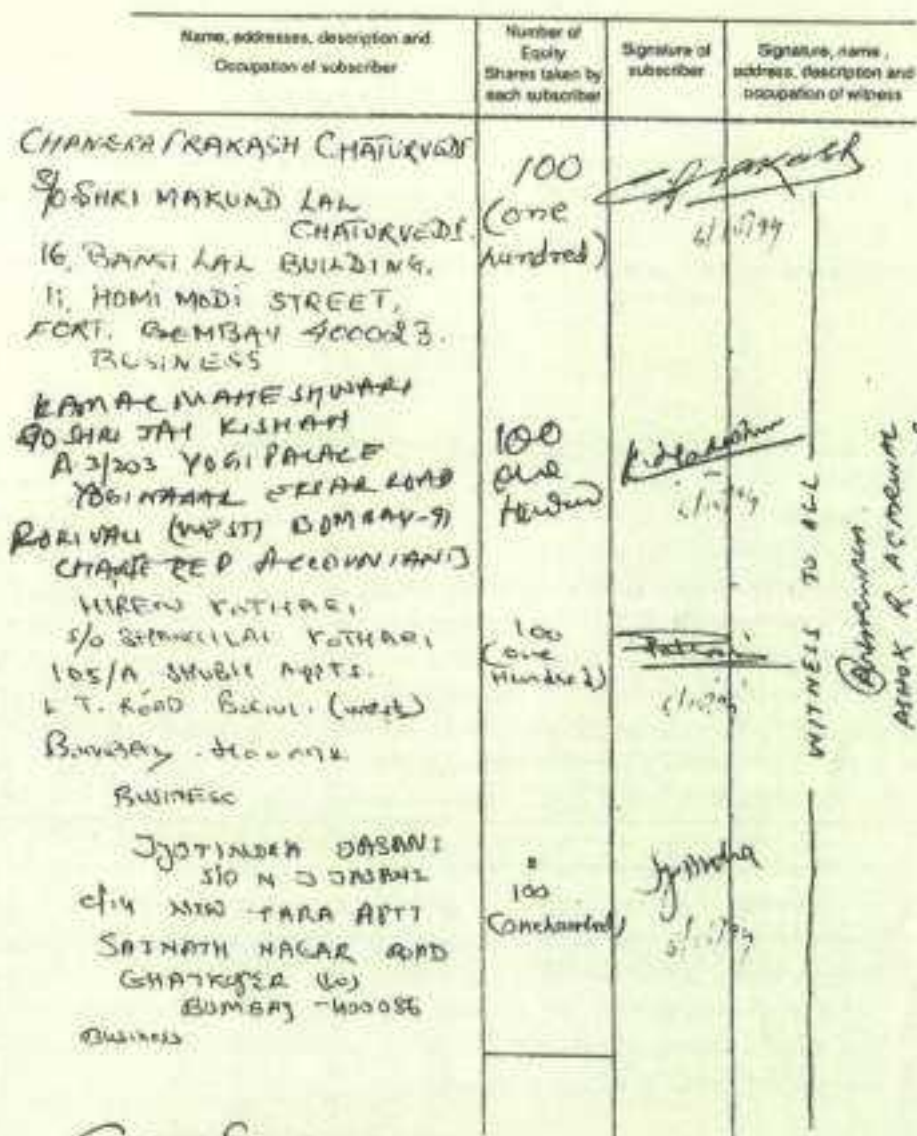 Name, addresses, description and
Occupation of subscriber
Number of
Equity
Shares taken by
each subscriber
Signature of
subscriber
Signature, name,
address, description and
occupation of witness
CHANDRA PRAKASH CHATURVEDI
S/O SHRI MAKUND LAL
CHATURVEDI.
16, BANSI LAL BUILDING,
11, HOMI MODI STREET,
FORT. BOMBAY 400023.
BUSINESS
100
(one
hundred)
CPrakash
6/10/94
KAMAL MAHESHWARI
S/O SHRI JAI KISHAN
A 3/203 YOGI PALACE
YOGINAGAR ROAD
BORIVALI (WEST) BOMBAY-91
CHARTERED ACCOUNTANT
100
one
hundred
6/10/94
HIREN KOTHARI
S/O KOTHARI
105/A SHUBH APPTS.
L T. ROAD (west)
BOMBAY
BUSINESS
100
(one
Hundred)
6/10/94
JYOTINDRA JASANI
S/O N J JASANI
C/14 NEW TARA APTT
SAINATH NAGAR ROAD
GHATKOPER (W)
BOMBAY -400086
Business
100
(one hundred)
6/10/94
WITNESS TO ALL
ASHOK R. AGARWAL